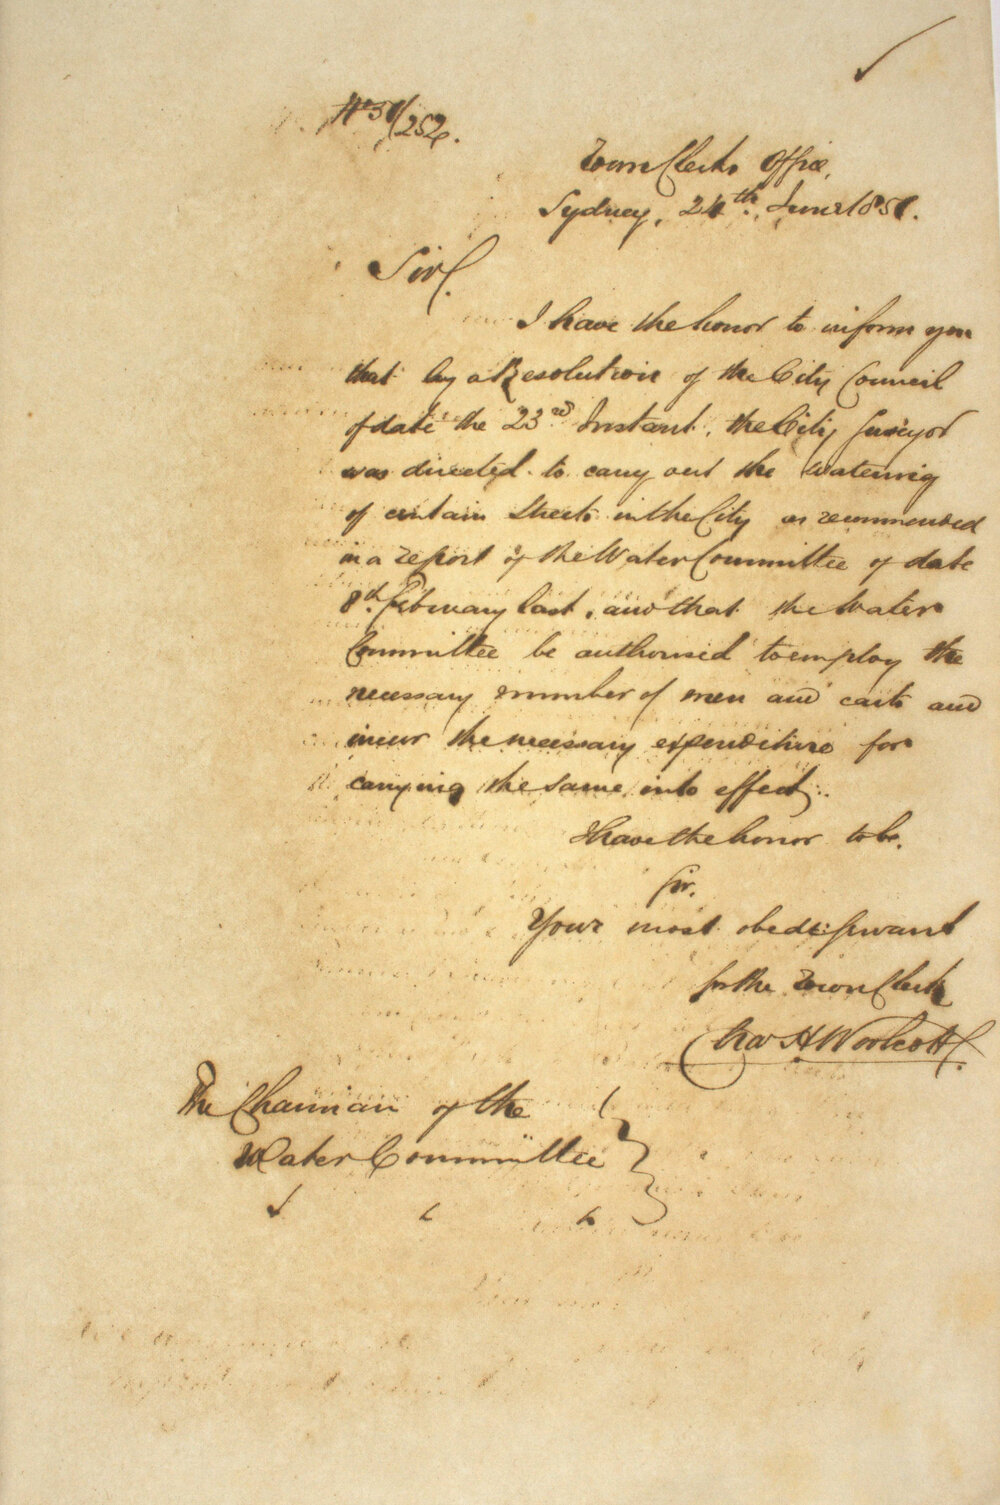 No 51/252.
Town Clerks Office,
Sydney, 24th. June 1851.
Sir,
I have the honor to inform you
that by a Resolution of the City Council
of date the 23rd Instant, the City Surveyor
was directed to carry out the watering
of certain Streets in the City as recommended
in a report of the Water Committee of date
8th. February last, and that the Water
Committee be authorised to employ the
necessary number of men and carts and
incur the necessary expenditure for
carrying the same into effect.
I have the honor to be,
Sir,
Your most obedt. Servant
for the Town Clerk
Chas H Woolcott
The Chairman of the
Water Committee